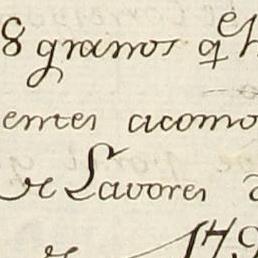 8 granos q^e
entes acomo
de Lavores
179